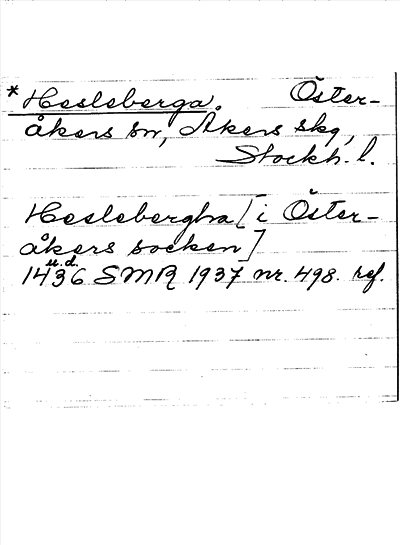 *Hesleberga. Öster-
åkers sn, Åkers skg,
Stockh. l.
Heslebergha [i Öster-
åkers socken]
u.d.
1436 SMR 1937 nr. 498. ref.